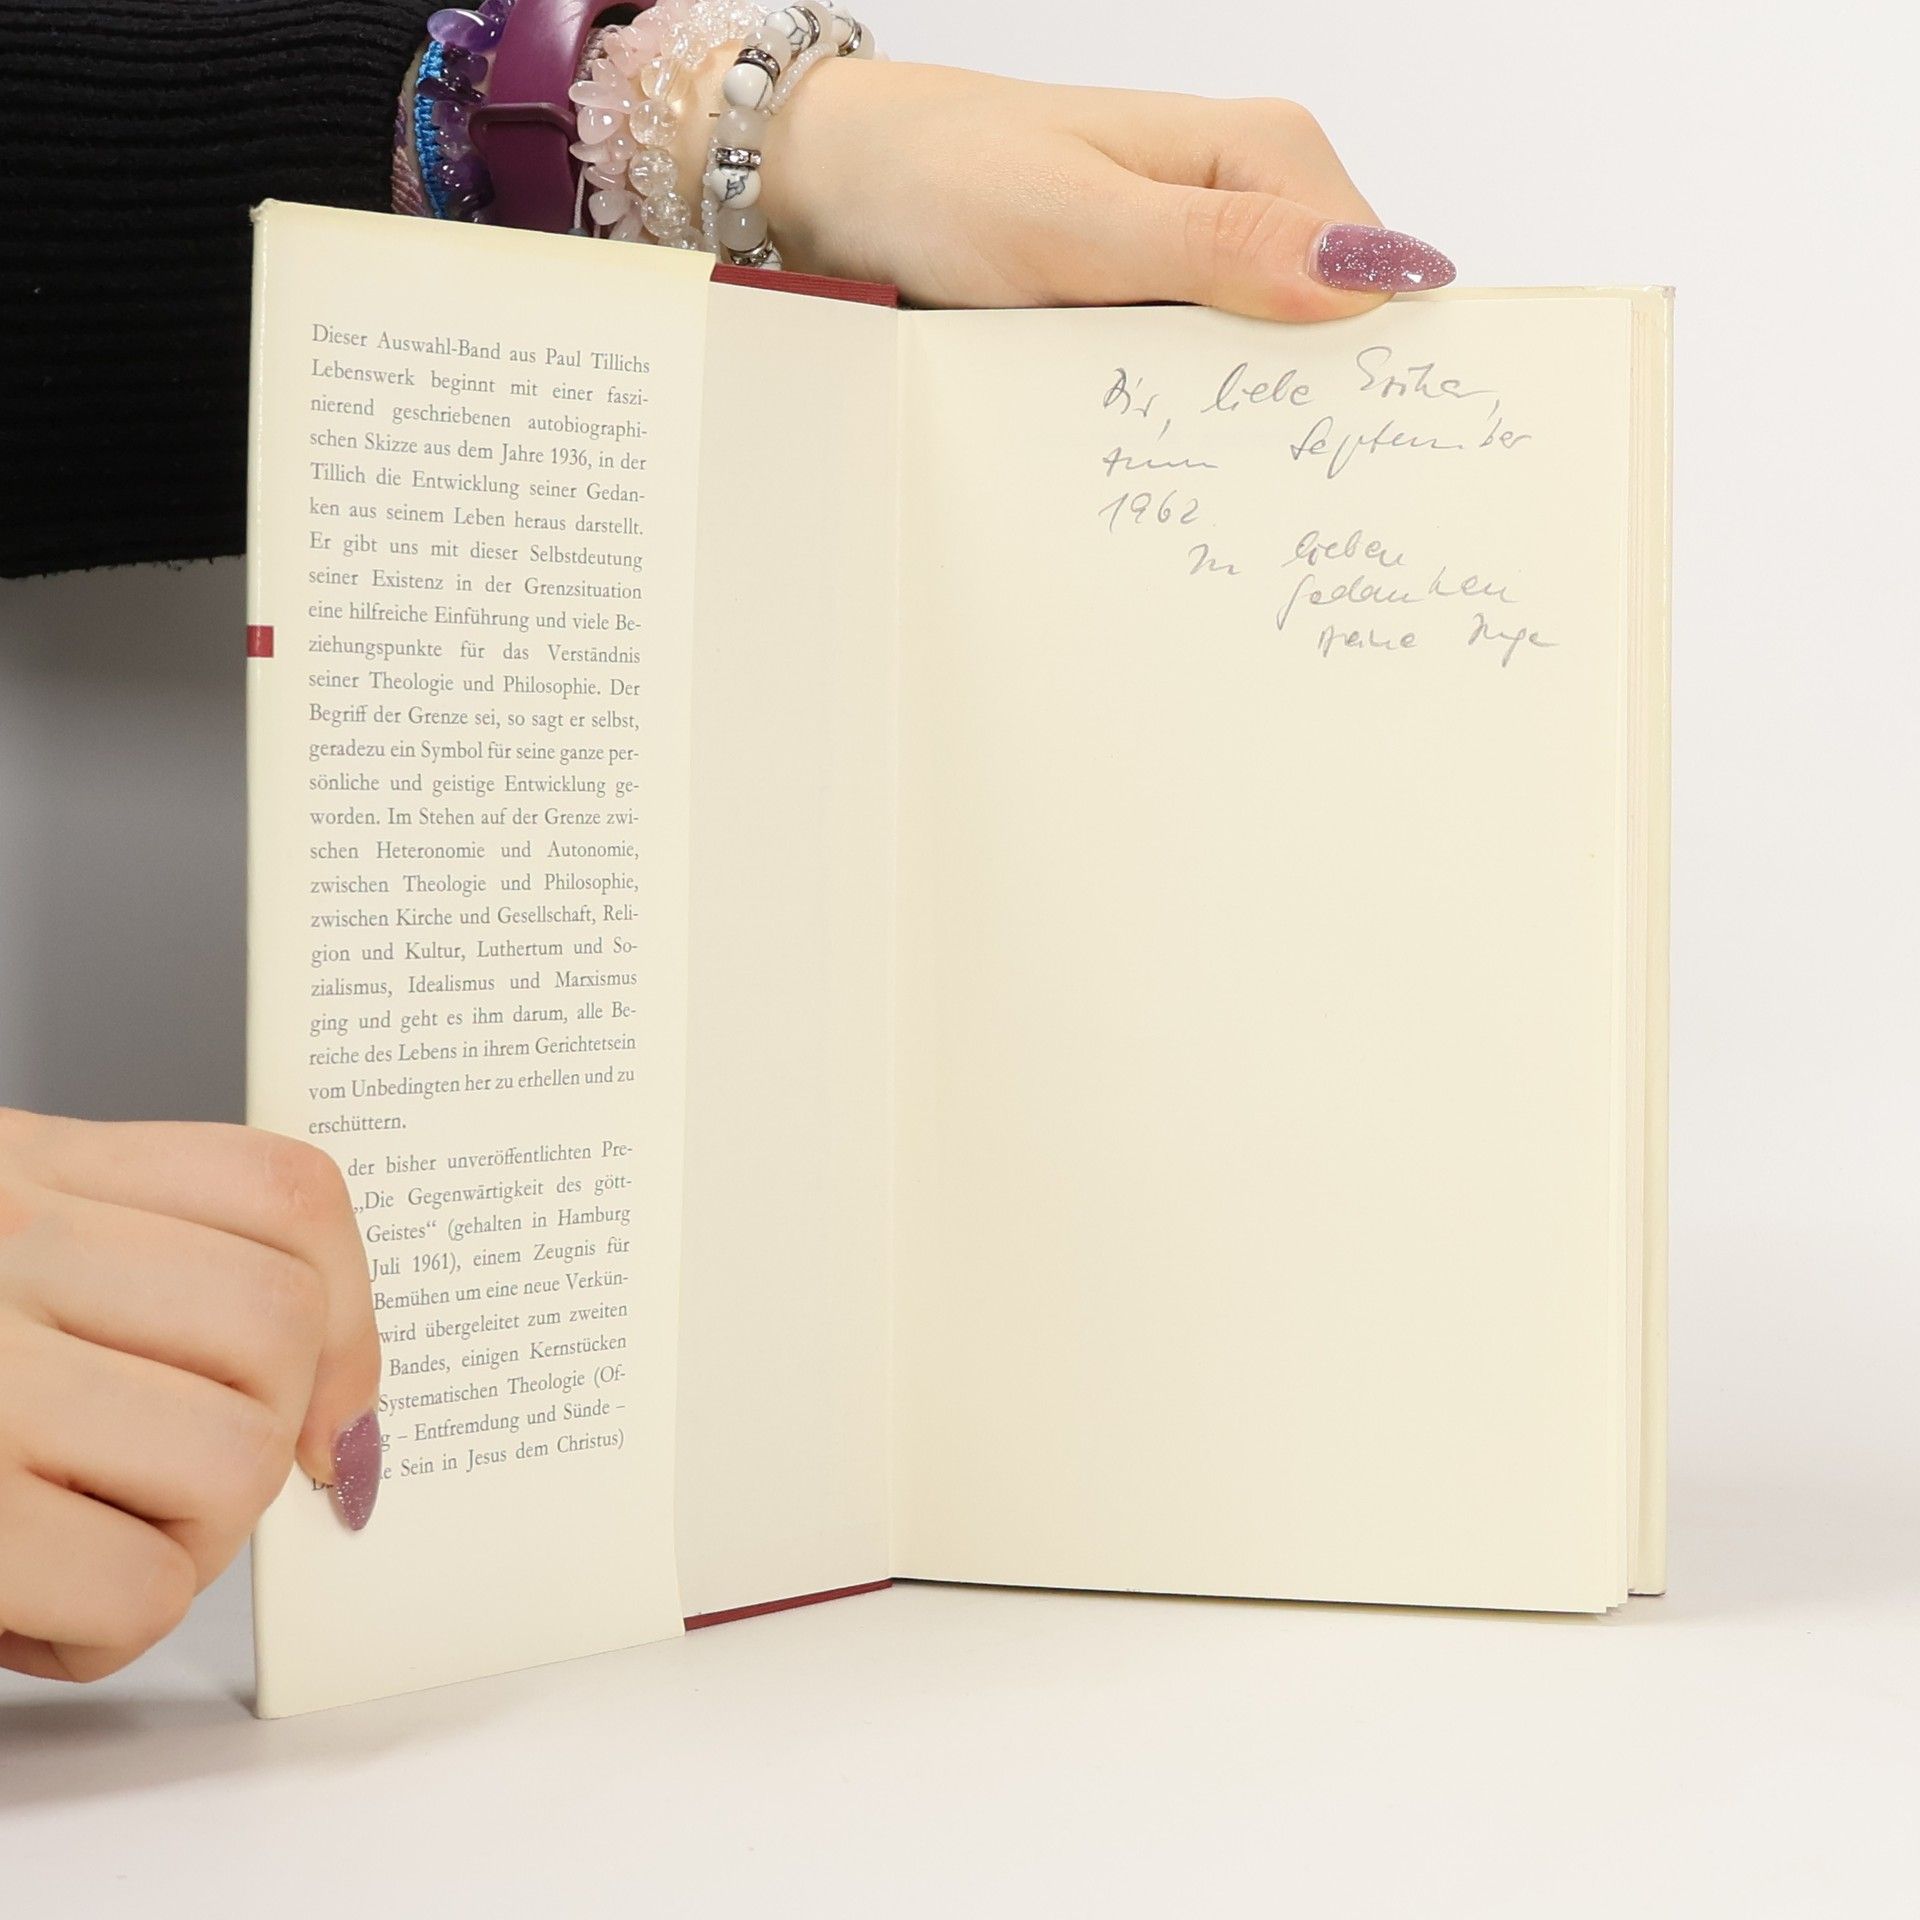 Dieser Auswahl-Band aus Paul Tillichs
Lebenswerk beginnt mit einer faszi-
nierend geschriebenen autobiographi-
schen Skizze aus dem Jahre 1936, in der
Tillich die Entwicklung seiner Gedan-
ken aus seinem Leben heraus darstellt.
Er gibt uns mit dieser Selbstdeutung
seiner Existenz in der Grenzsituation
eine hilfreiche Einführung und viele Be-
ziehungspunkte für das Verständnis
seiner Theologie und Philosophie. Der
Begriff der Grenze sei, so sagt er selbst,
geradezu ein Symbol für seine ganze per-
sönliche und geistige Entwicklung ge-
worden. Im Stehen auf der Grenze zwi-
schen Heteronomie und Autonomie,
zwischen Theologie und Philosophie,
zwischen Kirche und Gesellschaft, Reli-
gion und Kultur, Luthertum und So-
zialismus, Idealismus und Marxismus
ging und geht es ihm darum, alle Be-
reiche des Lebens in ihrem Gerichtetsein
vom Unbedingten her zu erhellen und zu
erschüttern.
der bisher unveröffentlichten Pre-
„Die Gegenwärtigkeit des gött-
Geistes“ (gehalten in Hamburg
Juli 1961), einem Zeugnis für
Bemühen um eine neue Verkün-
wird übergeleitet zum zweiten
Bandes, einigen Kernstücken
Systematischen Theologie (Of-
g – Entfremdung und Sünde –
e Sein in Jesus dem Christus)
Dir, liebe
zum September
1962
In lieben
Gedanken
Deine Inge